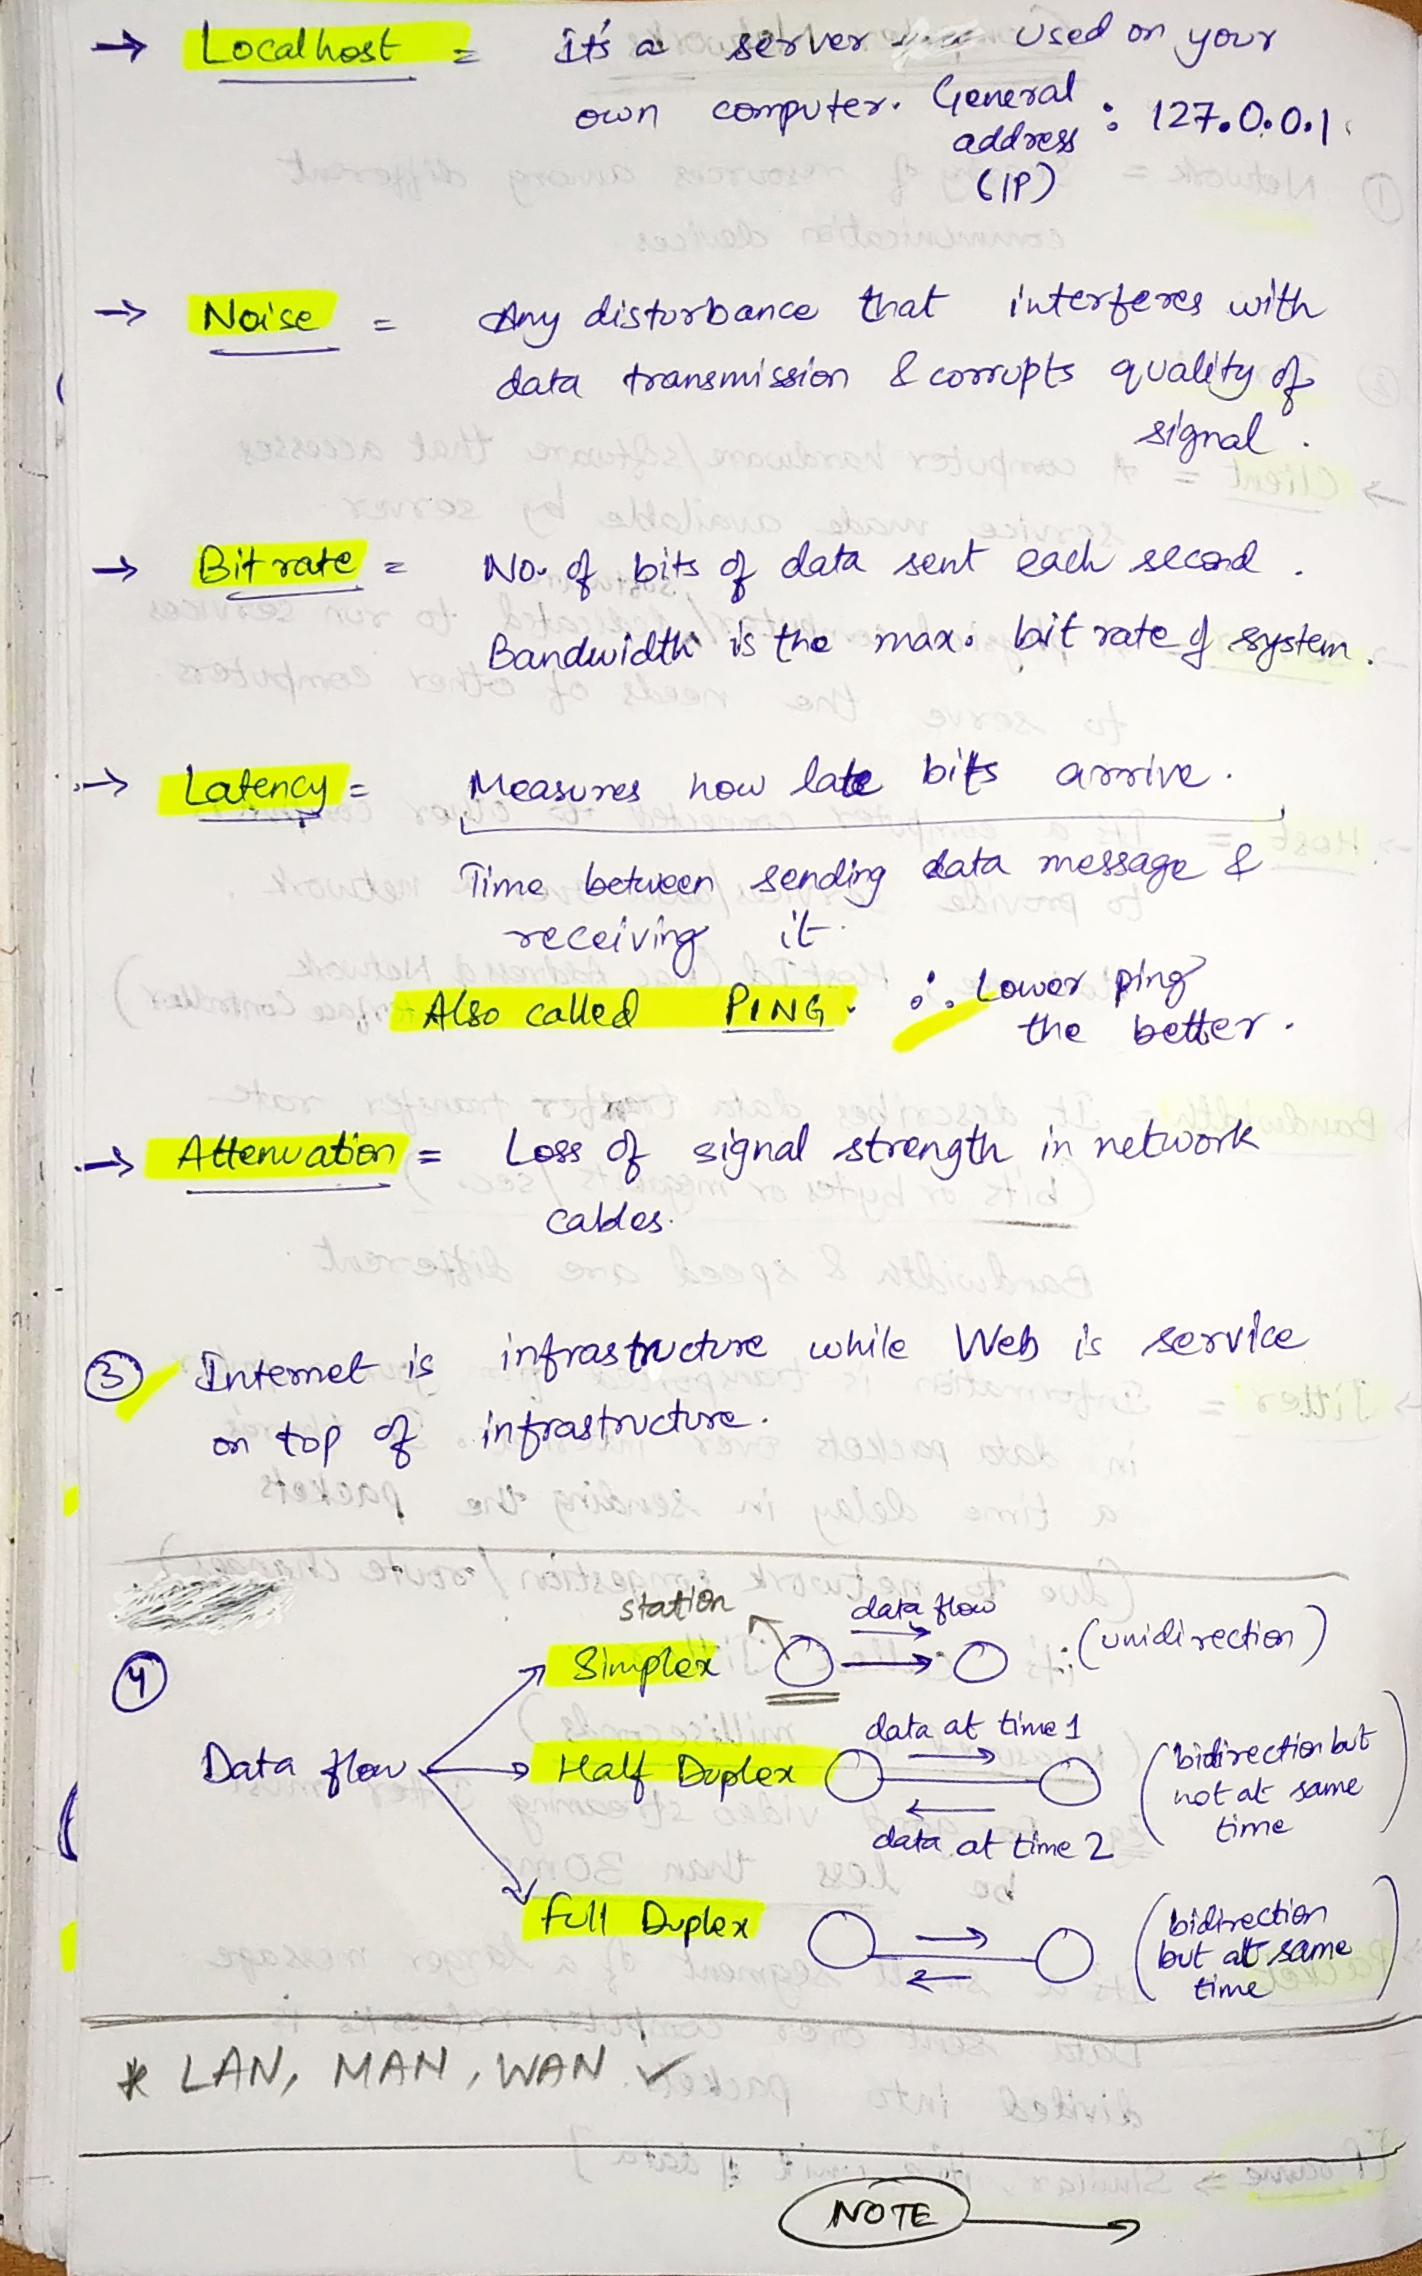 → Localhost = It's a server used on your
own computer. General address (IP) : 127.0.0.1
→ Noise = Any disturbance that interferes with
data transmission & corrupts quality of
signal.
→ Bit rate = No. of bits of data sent each second.
Bandwidth is the max. bit rate of system.
→ Latency = Measures how late bits arrive.
Time between sending data message &
receiving it.
Also called PING. ∴ Lower ping
the better.
→ Attenuation = Loss of signal strength in network
cables.
③ Internet is infrastructure while Web is service
on top of infrastructure.
④
station
data flow
Simplex (unidirection)
data at time 1
Data flow
Half Duplex (bidirection but
not at same
time)
data at time 2
Full Duplex (bidirection
but at same
time)
* LAN, MAN, WAN ✓
NOTE →